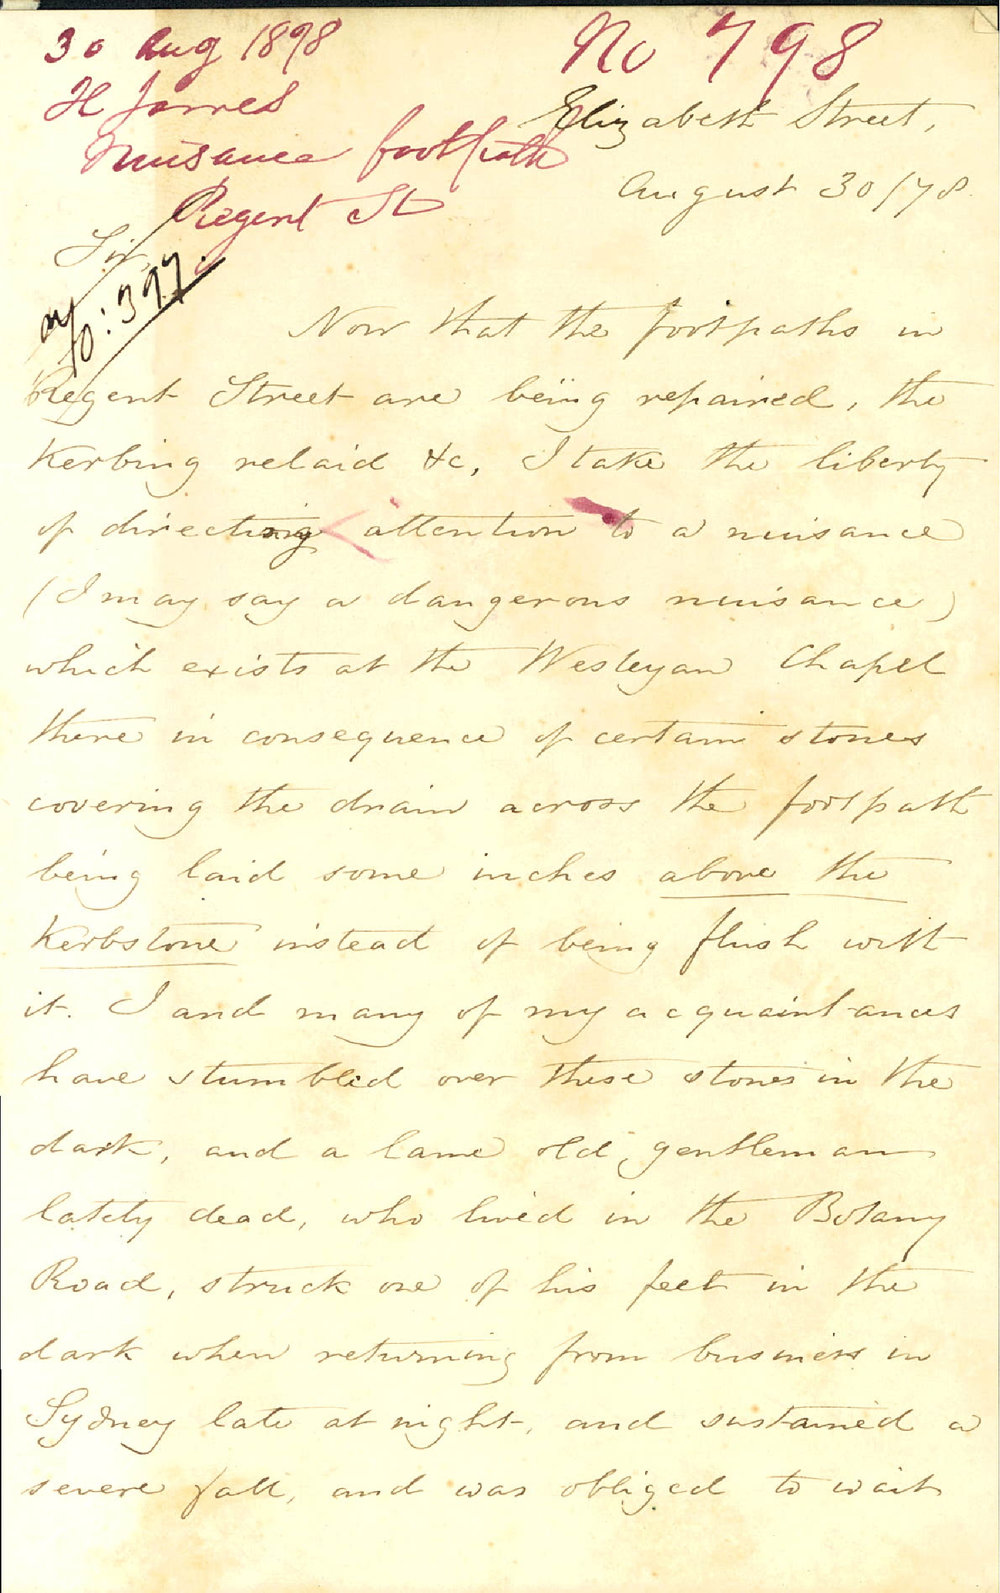 30 Aug 1898
No 798
H Jones
Nuisance footpath
Regent St
Elizabeth Street,
August 30/78.
Sir,
No: 397.
Now that the footpaths in
Regent Street are being repaired, the
Kerbing relaid &c, I take the liberty
of directing attention to a nuisance
(I may say a dangerous nuisance)
which exists at the Wesleyan Chapel
there in consequence of certain stones
covering the drain across the footpath
being laid some inches above the
Kerbstone instead of being flush with
it. I and many of my acquaintances
have stumbled over these stones in the
dark, and a lame old gentleman
lately dead, who lived in the Botany
Road, struck one of his feet in the
dark when returning from business in
Sydney late at night, and sustained a
severe fall, and was obliged to wait